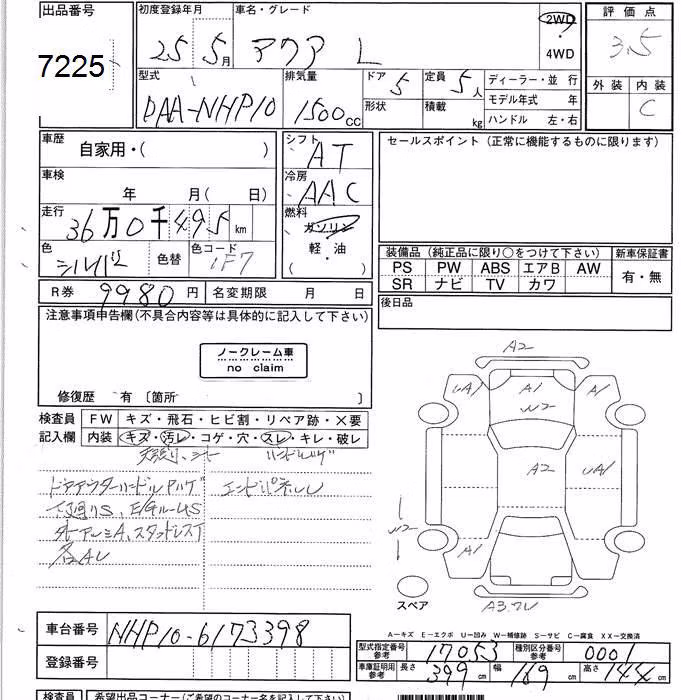 出品番号
7225
初度登録年月
25 5月
車名・グレード
アクア L
2WD
4WD
評価点
3.5
外装 内装
C
型式
DAA-NHP10
排気量
1500cc
ドア 5
形状
定員 5人
積載 kg
ディーラー・並行
モデル年式 年
ハンドル 左・右
車歴
自家用・( )
シフト
AT
セールスポイント(正常に機能するものに限ります)
車検
年 月( 日)
冷房
AAC
走行
36万0千495km
燃料
ガソリン
軽・油
( )
色
シルバー
色替
色コード
1F7
装備品(純正品に限り○をつけて下さい)
新車保証書
PS PW ABS エアB AW
SR ナビ TV カワ
有・無
R券 9980円
名変期限 月 日
後日品
注意事項申告欄(不具合内容等は具体的に記入して下さい)
ノークレーム車
no claim
修復歴 有 〔箇所 〕
検査員
記入欄
FW キズ・飛石・ヒビ割・リペア跡・×要
内装 キズ・汚レ・コゲ・穴・スレ・キレ・破レ
ハンドルハゲ
ドアアウターハンドルハゲ
下廻りS、E/GルームS
エンドパネルU
社外アルミA、スタッドレスT
各AU
A2
UA1
A1
W2
A1
A2
UA1
W2
A1
A3.U
スペア
A-キズ E-エクボ U-凹み W-補修跡 S-サビ C-腐食 XX-交換済
車台番号 NHP10-6173398
登録番号
型式指定番号
参考
17053
種別区分番号
参考
0001
車庫証明用
参考
長さ 399cm
幅 169cm
高さ 144cm
検査員
希望出品コーナー(ご希望のコーナー名を記入して下さい)